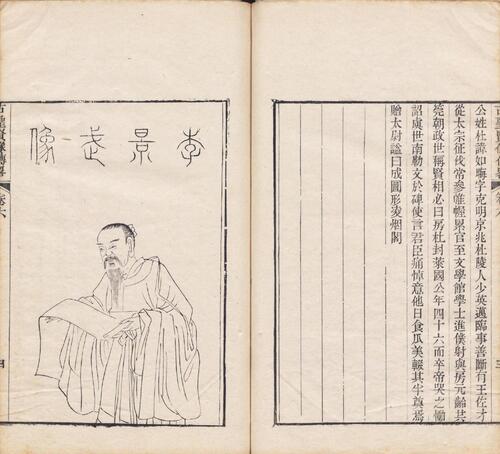 公姓杜諱如晦字克明京兆杜陵人少英邁臨事善斷有王佐才
從太宗征伐常參帷幄累官至文學館學士進僕射與房元齡共
筦朝政世稱賢相必曰房杜封萊國公年四十六而卒帝哭之慟
詔虞世南勒文於碑使言君臣痛悼意他日食瓜美輟其半奠焉
贈太尉諡曰成圖形凌烟閣
李景武像
古聖賢像傳畧
卷六
四